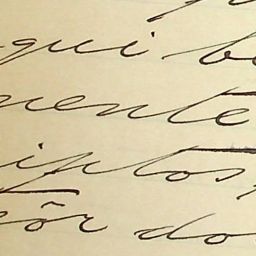 qui b
uente
iptos,
ôr do